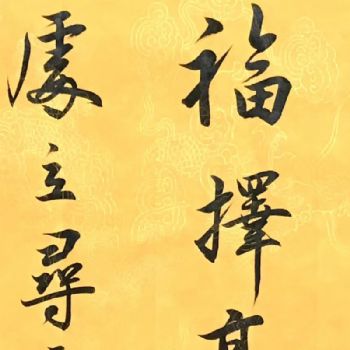 福擇
處立尋